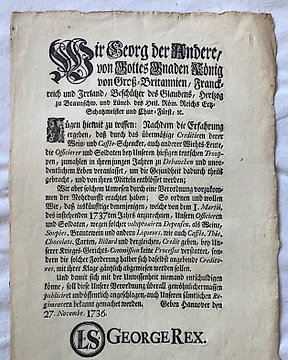 Wir Georg der Andere,
von Gottes Gnaden König
von Groß-Britannien, Franck-
reich und Irrland, Beschützer des Glaubens, Hertzog
zu Braunschw. und Lüneb. des Heil. Röm. Reichs Ertz-
Schatzmeister und Chur-Fürst, ꝛc.
Fügen hiemit zu wissen: Nachdem die Erfahrung
ergeben, daß durch das übermäßige Creditiren derer
Wein- und Caffée-Schencker, auch anderer Wirths-Leute,
die Officierer und Soldaten bey Unseren hiesigen teutschen Trou-
pen, zumahlen in ihren jungen Jahren zu Debauchen und unor-
dentlichem Leben veranlasset, um die Gesundheit dadurch theils
gebracht, und von ihren Mitteln entblösset werden;
Wir aber solchem Unwesen durch eine Verordnung vorzukom-
men der Nohtdurfft erachtet haben; So ordnen und wollen
Wir, daß inskünfftige denenjenigen, welche von dem 1. Martii,
des instehenden 1737ten Jahrs anzurechnen, Unsern Officirern
und Soldaten, wegen solcher voluptuairen Depensen, als Weine,
Soupées, Brantewein und andern Liqueurs, wie auch Caffée, Thé,
Chocolate, Carten, Billard und dergleichen, Credit geben, bey Un-
serer Kriegs-Gerichts-Commission keine Processe verstattet, son-
dern die solcher Forderung halber sich daselbst angebende Credito-
res, mit ihrer Klage gäntzlich abgewiesen werden sollen.
Und damit sich mit der Unwissenheit niemand entschuldigen
könne, soll diese Unsere Verordnung überall gewöhnlichermassen
publiciret und öffentlich angeschlagen, auch Unseren sämtlichen Re-
gimentern bekannt gemachet werden. Geben Hannover den
27. Novembr. 1736.
LS GEORGE REX.